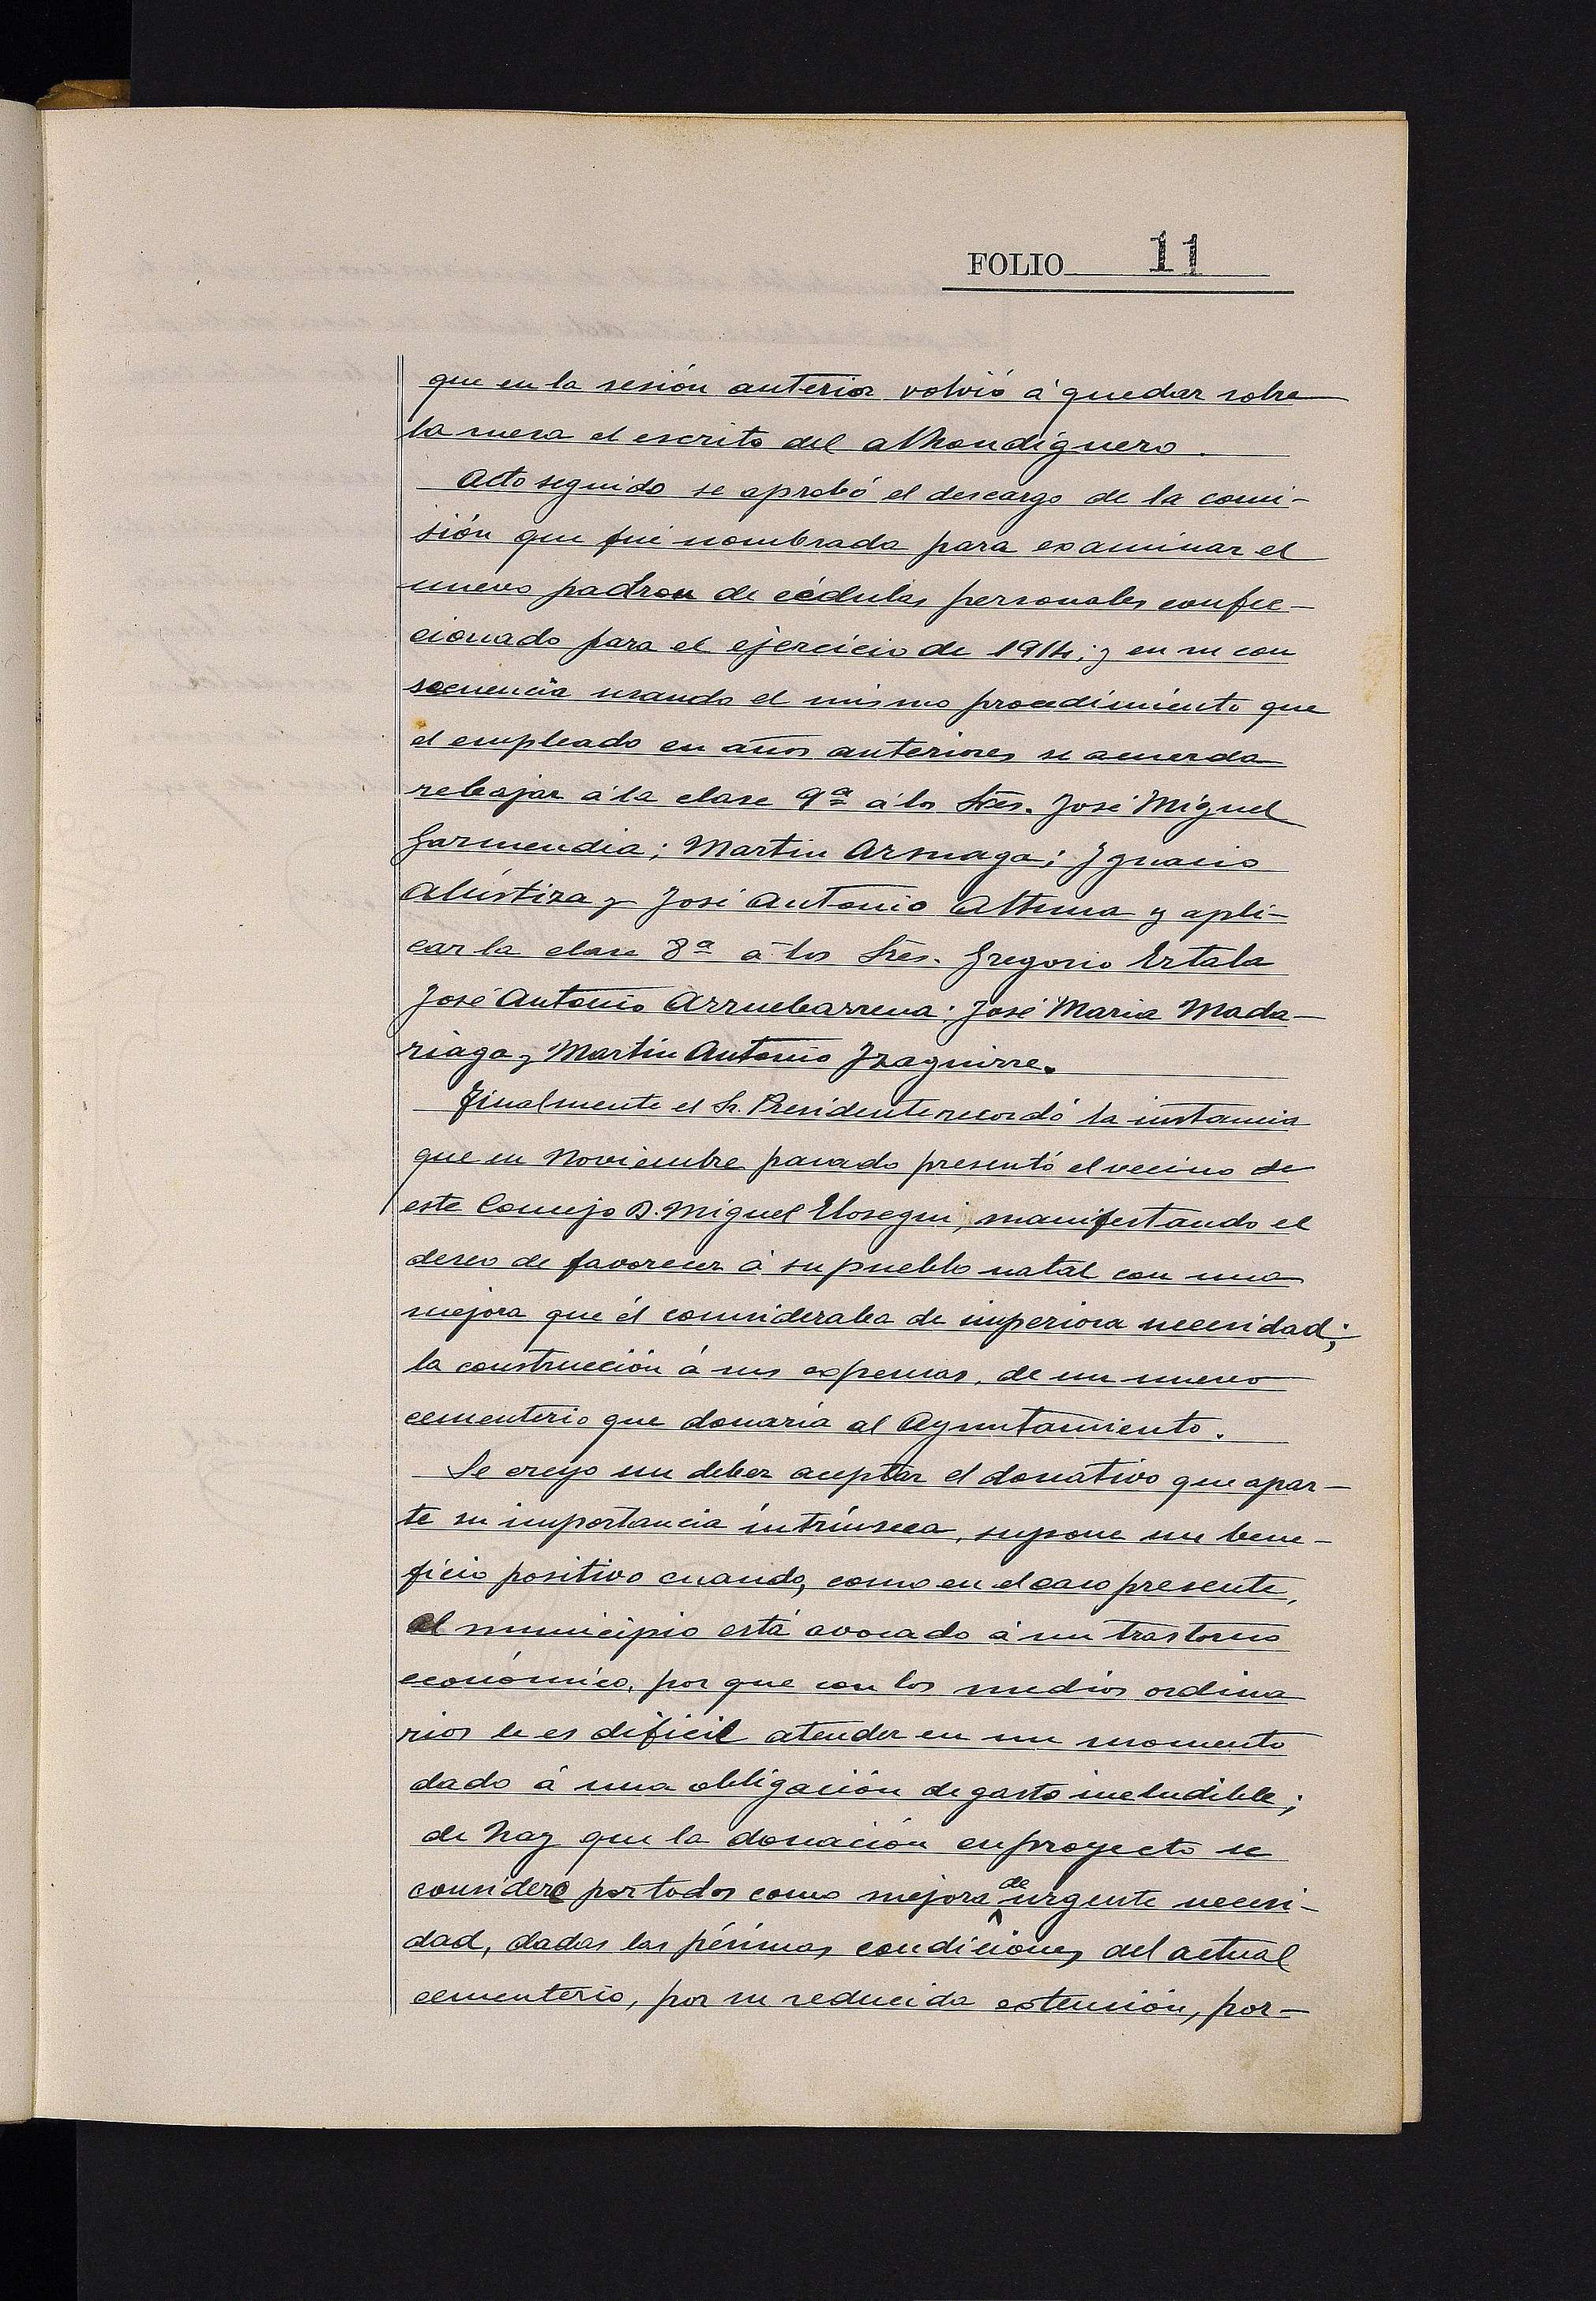 FOLIO 11
que en la sesión anterior volvió á quedar sobre
la mesa el escrito del alhondiguero.
Acto seguido se aprobó el descargo de la comi-
sión que fué nombrada para examinar el
nuevo padron de cédulas personales confec-
cionado para el ejercicio de 1914; y en su con
secuencia usando el mismo procedimiento que
el empleado en años anteriores se acuerda
rebajar á la clase 9ª á los Sres. José Miguel
Garmendia; Martin Arsuaga; Ignacio
Alústiza y José Antonio Altuna y apli-
car la clase 8ª á los Sres. Gregorio Ertala
José Antonio Arruebarrena; José Maria Mada-
riaga y Martin Antonio Izaguirre.
Finalmente el Sr. Presidente recordó la instancia
que en Noviembre pasado presentó el vecino de
este Concejo D. Miguel Elosegui, manifestando el
deseo de favorecer á su pueblo natal con una
mejora que él consideraba de imperiosa necesidad;
la construcción á sus expensas, de un nuevo
cementerio que donaría al Ayuntamiento.
Se creyo un deber aceptar el donativo que apar-
te su importancia intrínseca, supone un bene-
ficio positivo cuando, como en el caso presente,
el municipio está avocado á un trastorno
económico, por que con los medios ordina
rios le es dificil atender en un momento
dado á una obligación de gasto ineludible;
de hay que la donación en proyecto se
considere por todos como mejora de urgente necesi-
dad, dadas las pésimas condiciones del actual
cementerio, por su reducida extensión, por-